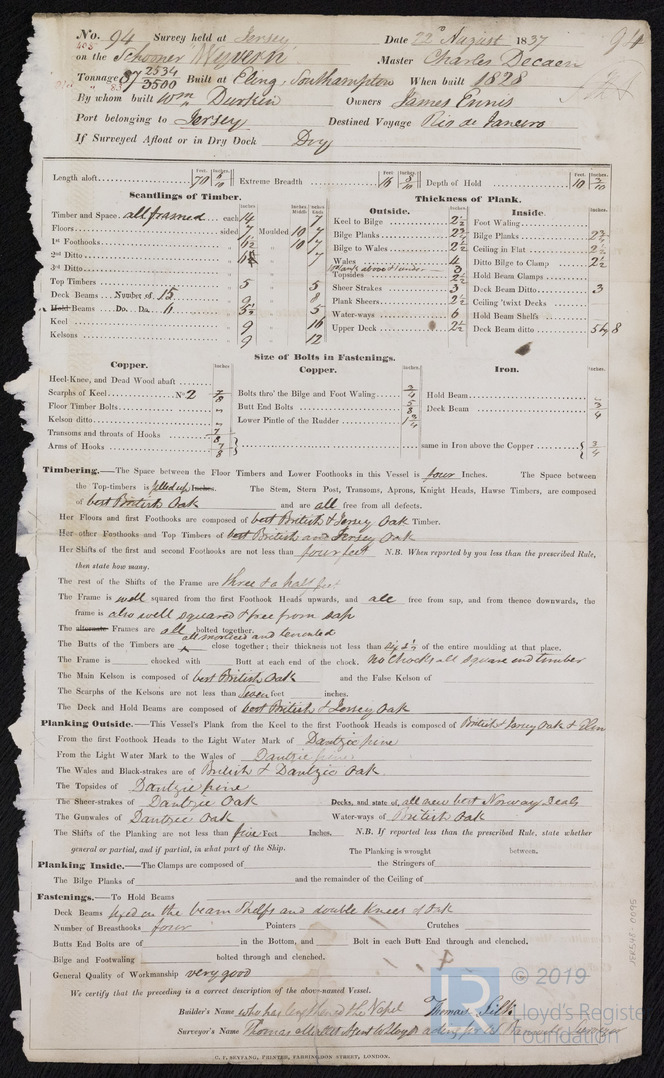 No. 94 Survey held at Jersey Date 22d August 1837 94
on the Schooner Wyvern Master Charles Decaen
Tonnage 87 2534/3500 Built at Eling, Southampton When built 1828
By whom built Wm Durkin Owners James Ennis
Port belonging to Jersey Destined Voyage Rio de Janeiro
If Surveyed Afloat or in Dry Dock Dry
Length aloft 70 Extreme Breadth 16 Depth of Hold 10
Scantlings of Timber. Thickness of Plank.
Outside. Inside.
Timber and Space all framed each 14
Floors sided 7 Moulded 10 7
1st Foothooks 6½ 10 7
2nd Ditto 7
3rd Ditto
Top Timbers 5 5
Deck Beams Number of 15 9 8
Hold Beams Do. Do. 5
Keel 9 16
Kelsons 9 12
Keel to Bilge 2½
Bilge Planks
Bilge to Wales 2½
Wales 4
Topsides 2½
Sheer Strakes 3
Plank Sheers 2½
Water-ways 6
Upper Deck 2½
Foot Waling
Bilge Planks
Ceiling in Flat
Ditto Bilge to Clamp 2½
Hold Beam Clamps
Deck Beam Ditto 3
Ceiling 'twixt Decks
Hold Beam Shelfs
Deck Beam ditto
Size of Bolts in Fastenings.
Copper. Copper. Iron.
Heel-Knee, and Dead Wood abaft
Scarphs of Keel No 2 7/8
Floor Timber Bolts
Kelson ditto
Transoms and throats of Hooks 7/8
Arms of Hooks 7/8
Bolts thro' the Bilge and Foot Waling 3/4
Butt End Bolts 5/8
Lower Pintle of the Rudder
Hold Beam
Deck Beam 3/4
same in Iron above the Copper 3/4
Timbering.—The Space between the Floor Timbers and Lower Foothooks in this Vessel is four Inches. The Space between
the Top-timbers is filled up Inches. The Stem, Stern Post, Transoms, Aprons, Knight Heads, Hawse Timbers, are composed
of best British Oak and are all free from all defects.
Her Floors and first Foothooks are composed of best British & Jersey Oak Timber.
Her other Foothooks and Top Timbers of best British and Jersey Oak
Her Shifts of the first and second Foothooks are not less than four feet N.B. When reported by you less than the prescribed Rule,
then state how many.
The rest of the Shifts of the Frame are three & a half feet
The Frame is well squared from the first Foothook Heads upwards, and all free from sap, and from thence downwards, the
frame is also well squared & free from sap
The alternate Frames are all bolted together.
The Butts of the Timbers are all morticed and tenanted close together; their thickness not less than of the entire moulding at that place.
The Frame is chocked with Butt at each end of the chock. no Chocks all square end timber
The Main Kelson is composed of best British Oak and the False Kelson of
The Scarphs of the Kelsons are not less than seven feet inches.
The Deck and Hold Beams are composed of best British & Jersey Oak
Planking Outside.—This Vessel's Plank from the Keel to the first Foothook Heads is composed of British & Jersey Oak & Elm
From the first Foothook Heads to the Light Water Mark of Dantzic pine
From the Light Water Mark to the Wales of Dantzic pine
The Wales and Black-strakes are of British & Dantzic Oak.
The Topsides of Dantzic pine
The Sheer-strakes of Dantzic Oak Decks, and state of, all new best Norway Deals
The Gunwales of Dantzic Oak Water-ways of British Oak
The Shifts of the Planking are not less than five Feet Inches. N.B. If reported less than the prescribed Rule, state whether
general or partial, and if partial, in what part of the Ship. The Planking is wrought between.
Planking Inside.—The Clamps are composed of the Stringers of
The Bilge Planks of and the remainder of the Ceiling of
Fastenings.—To Hold Beams
Deck Beams fixed on the beam Shelfs and double Knees of Oak
Number of Breasthooks four Pointers Crutches
Butts End Bolts are of in the Bottom, and Bolt in each Butt End through and clenched.
Bilge and Footwaling bolted through and clenched.
General Quality of Workmanship very good
We certify that the preceding is a correct description of the above-named Vessel.
Builder's Name who has lengthened the Vessel Thomas Silk
Surveyor's Name Thomas
C. F. SEYFANG, PRINTER, FARRINGDON STREET, LONDON.
© 2019
LR Lloyd's Register
Foundation